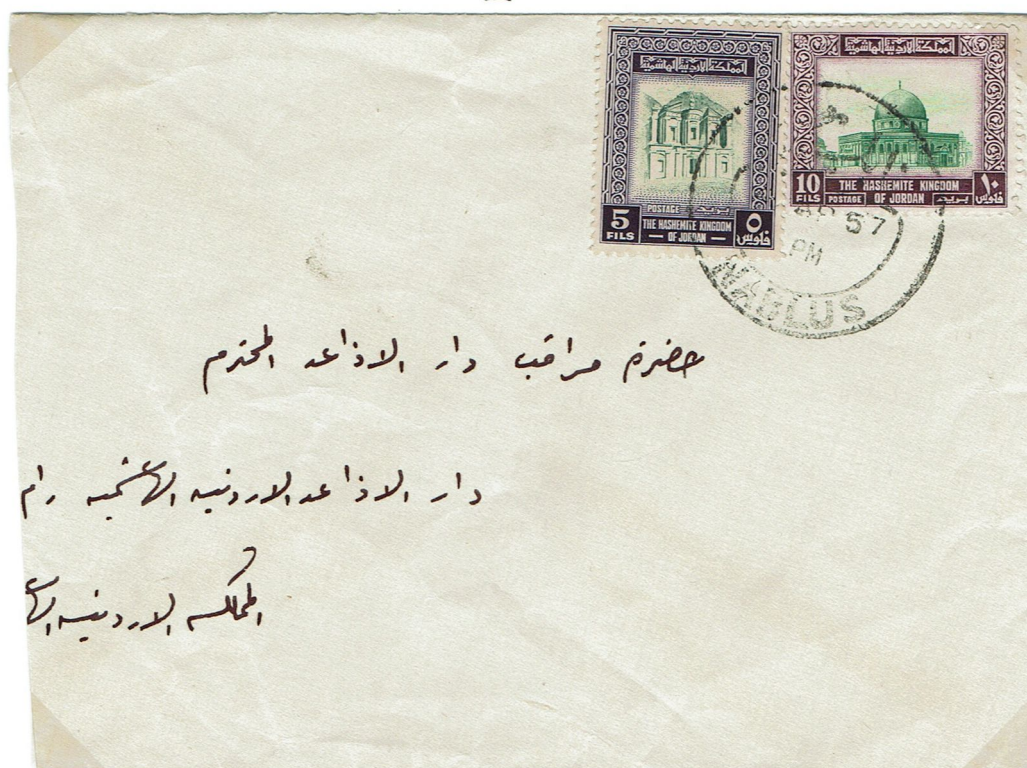 المملكة الاردنية الهاشمية
POSTAGE بريد
5 FILS THE HASHEMITE KINGDOM OF JORDAN ٥ فلوس
المملكة الاردنية الهاشمية
10 FILS THE HASHEMITE KINGDOM OF JORDAN ١٠ فلوس
POSTAGE بريد
57
PM
NABLUS
حضرة مراقب دار الاذاعه المحترم
دار الاذاعه الاردنيه الهاشميه رام
المملكه الاردنيه الها